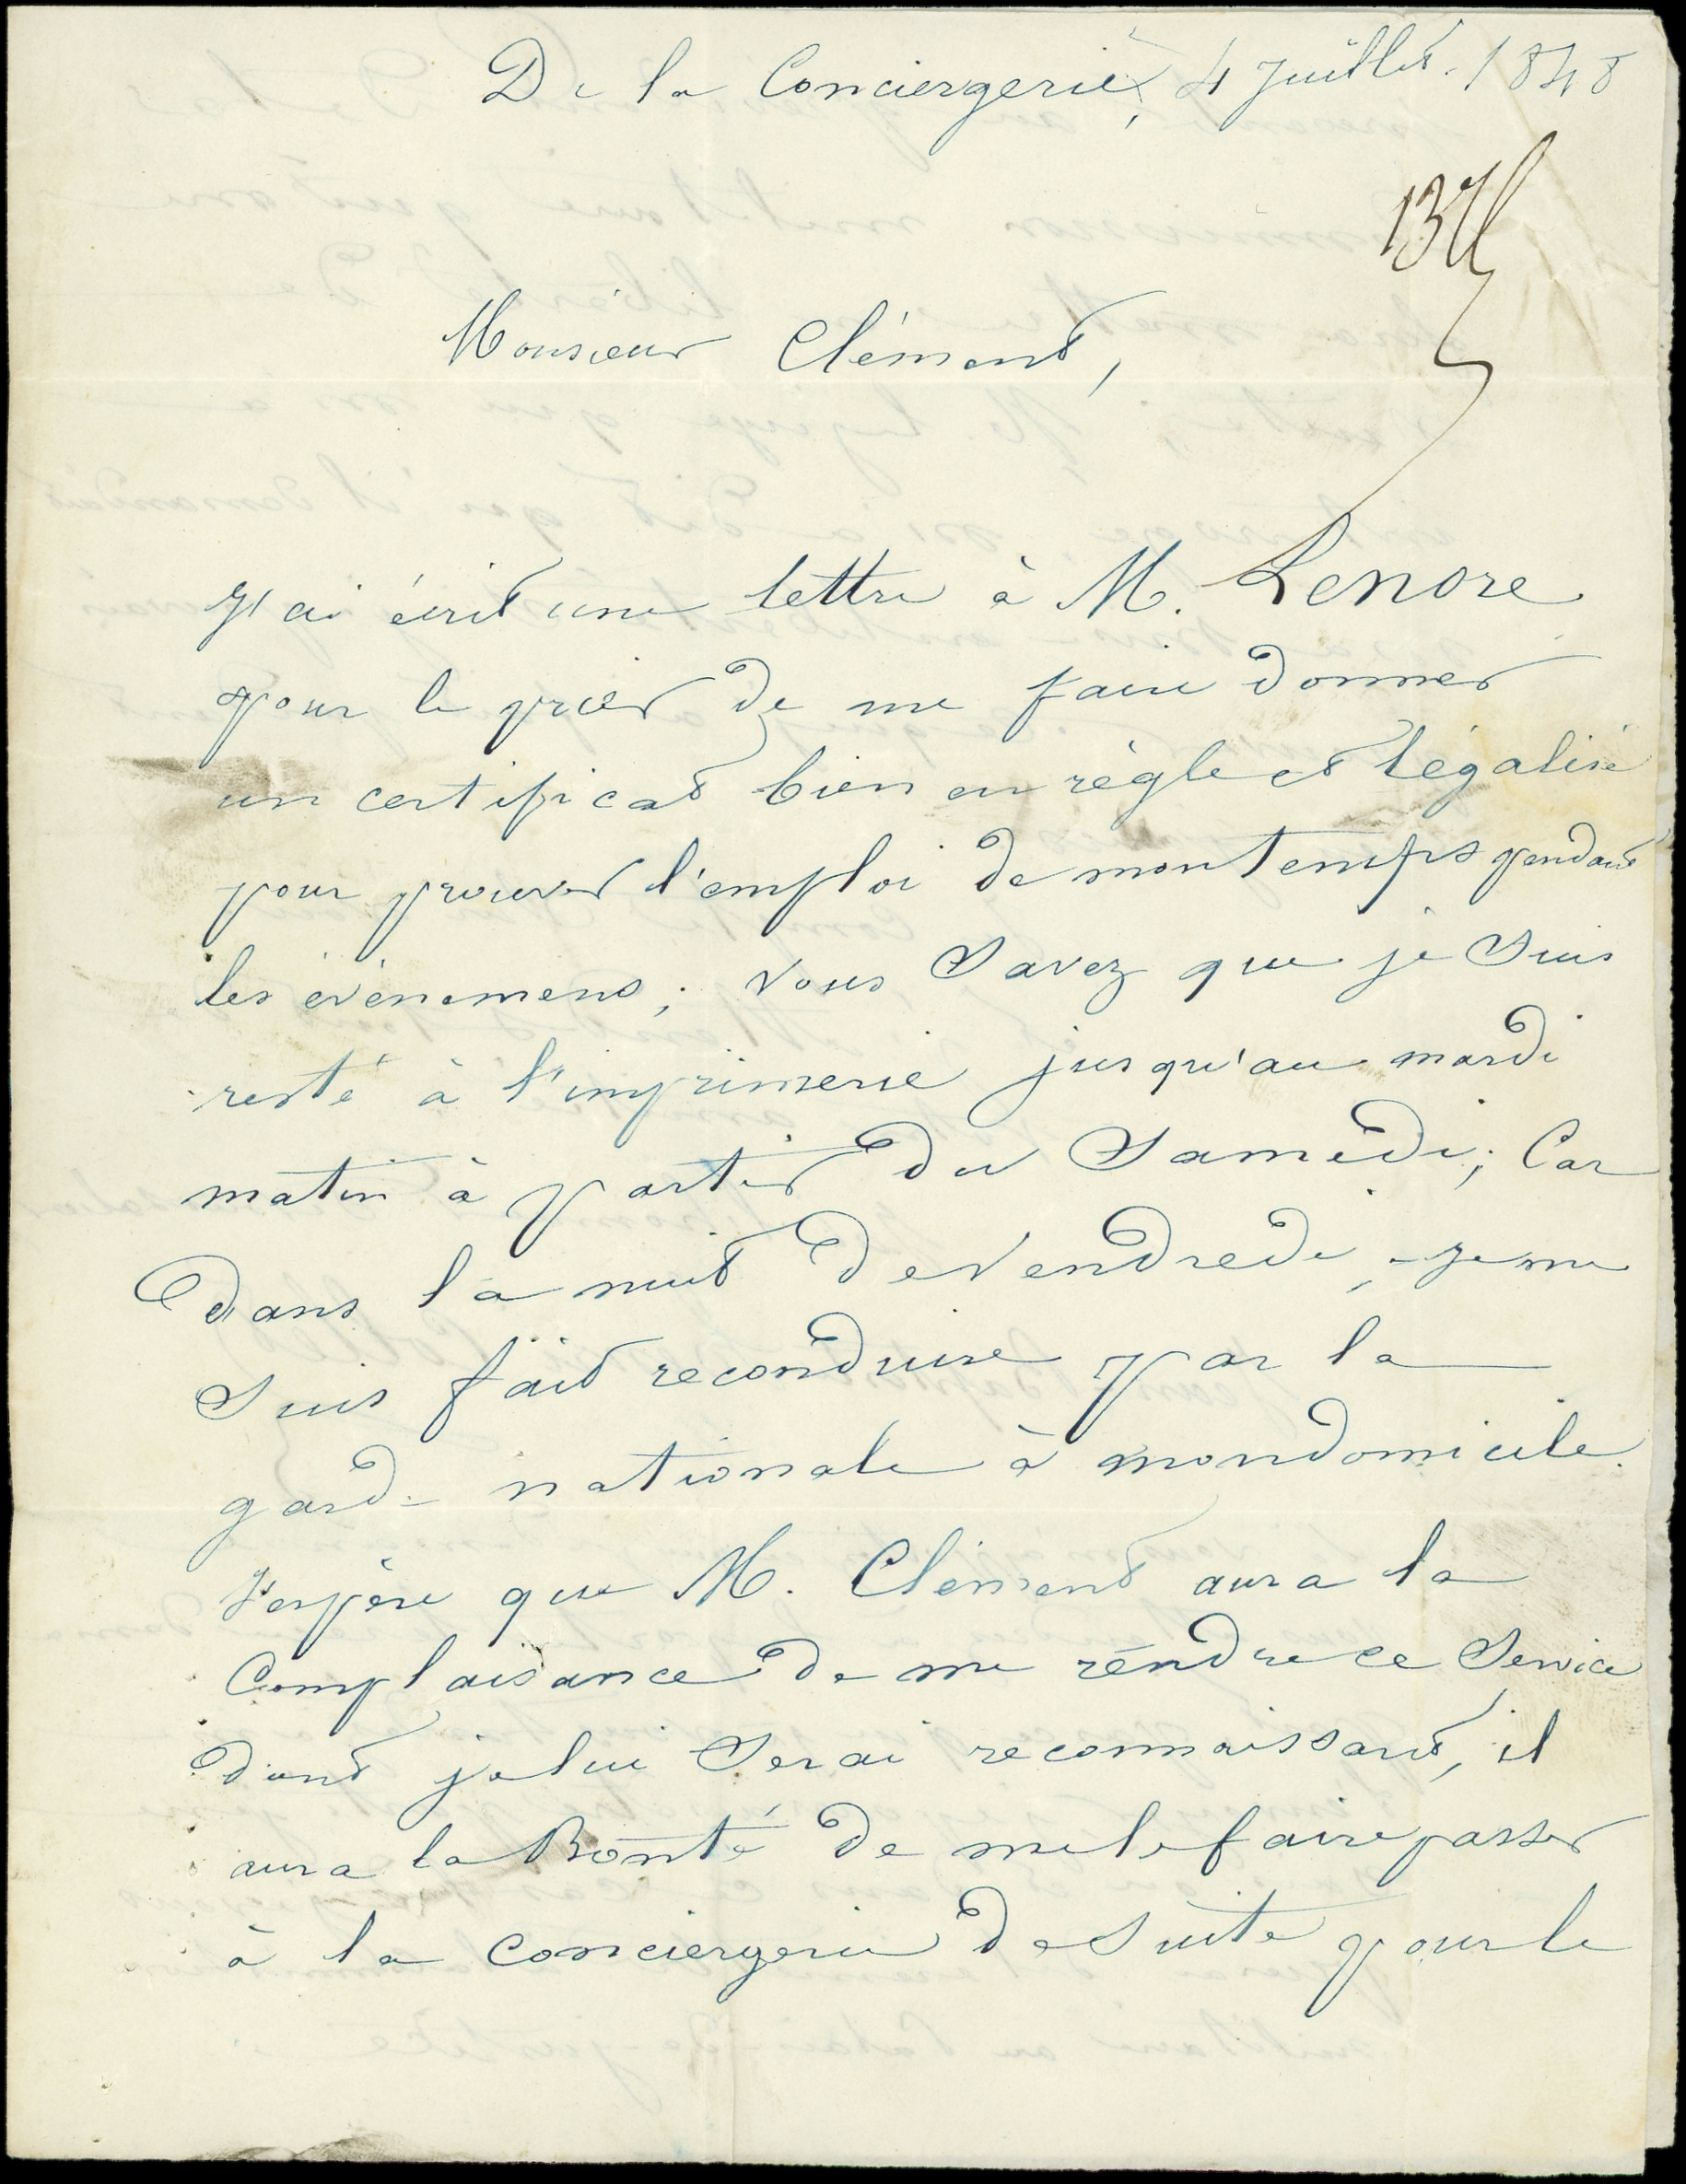 De la Conciergerie, 4 juillet 1848
Monsieur Clément,
J'ai écrit une lettre à M. Lenore
pour le prier de me faire donner
un certificat bien en règle et légalisé
pour prouver l'emploi de mon temps pendant
les évènemens ; vous savez que je suis
resté à l'imprimerie jusqu'au mardi
matin à partir du Samedi ; Car
dans la nuit de vendredi, je me
suis fait reconduire par la
garde nationale à mon domicile.
J'espère que M. Clément aura la
Complaisance de me rendre ce Service
dont je lui Serai reconnaissant, il
aura la Bonté de me le faire passer
à la Conciergerie de suite pour le